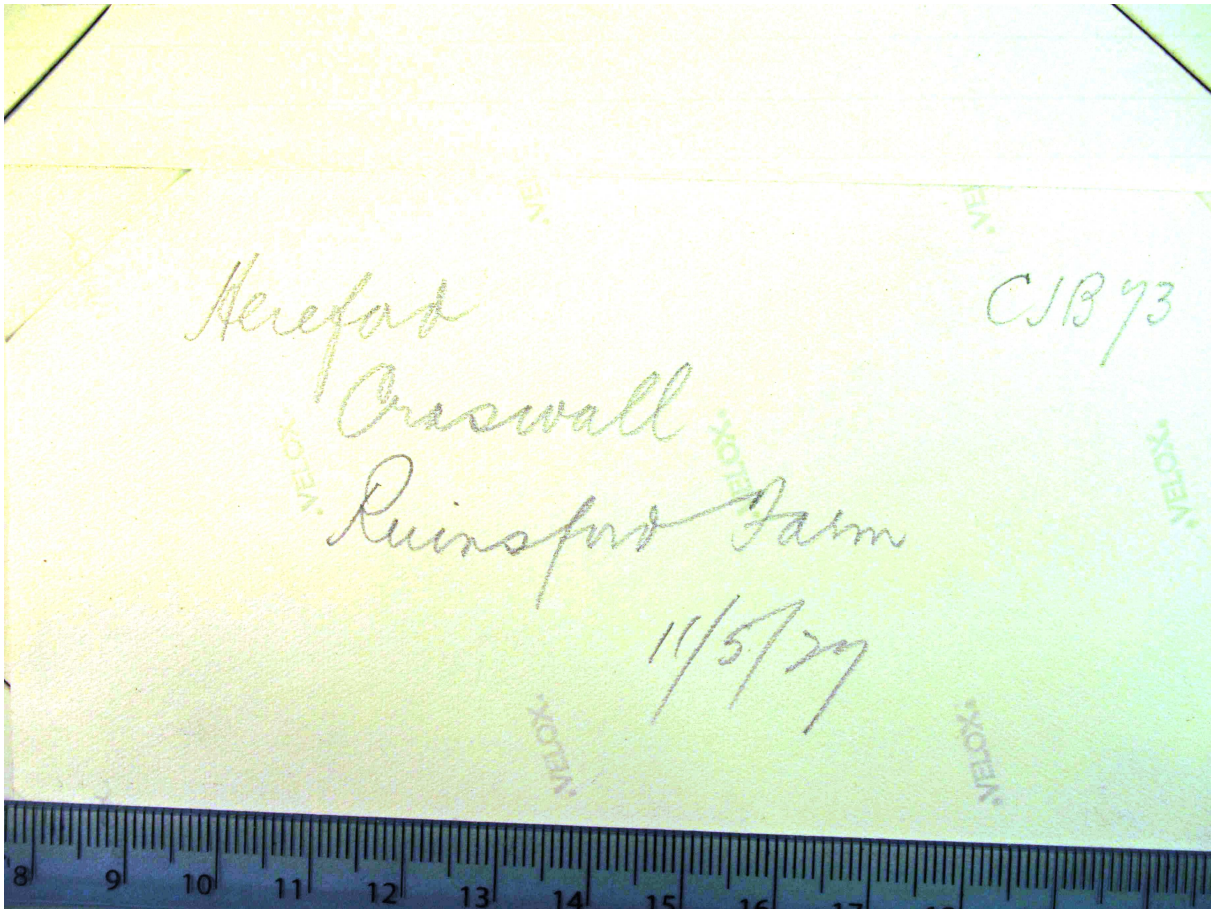 Hereford
CJB 73
Craswall
Ruinsford Farm
11/5/27
VEL
VE
VELOX
VELOX
VELOX
VELOX
VELOX
8 9 10 11 12 13 14 15 16 17 18